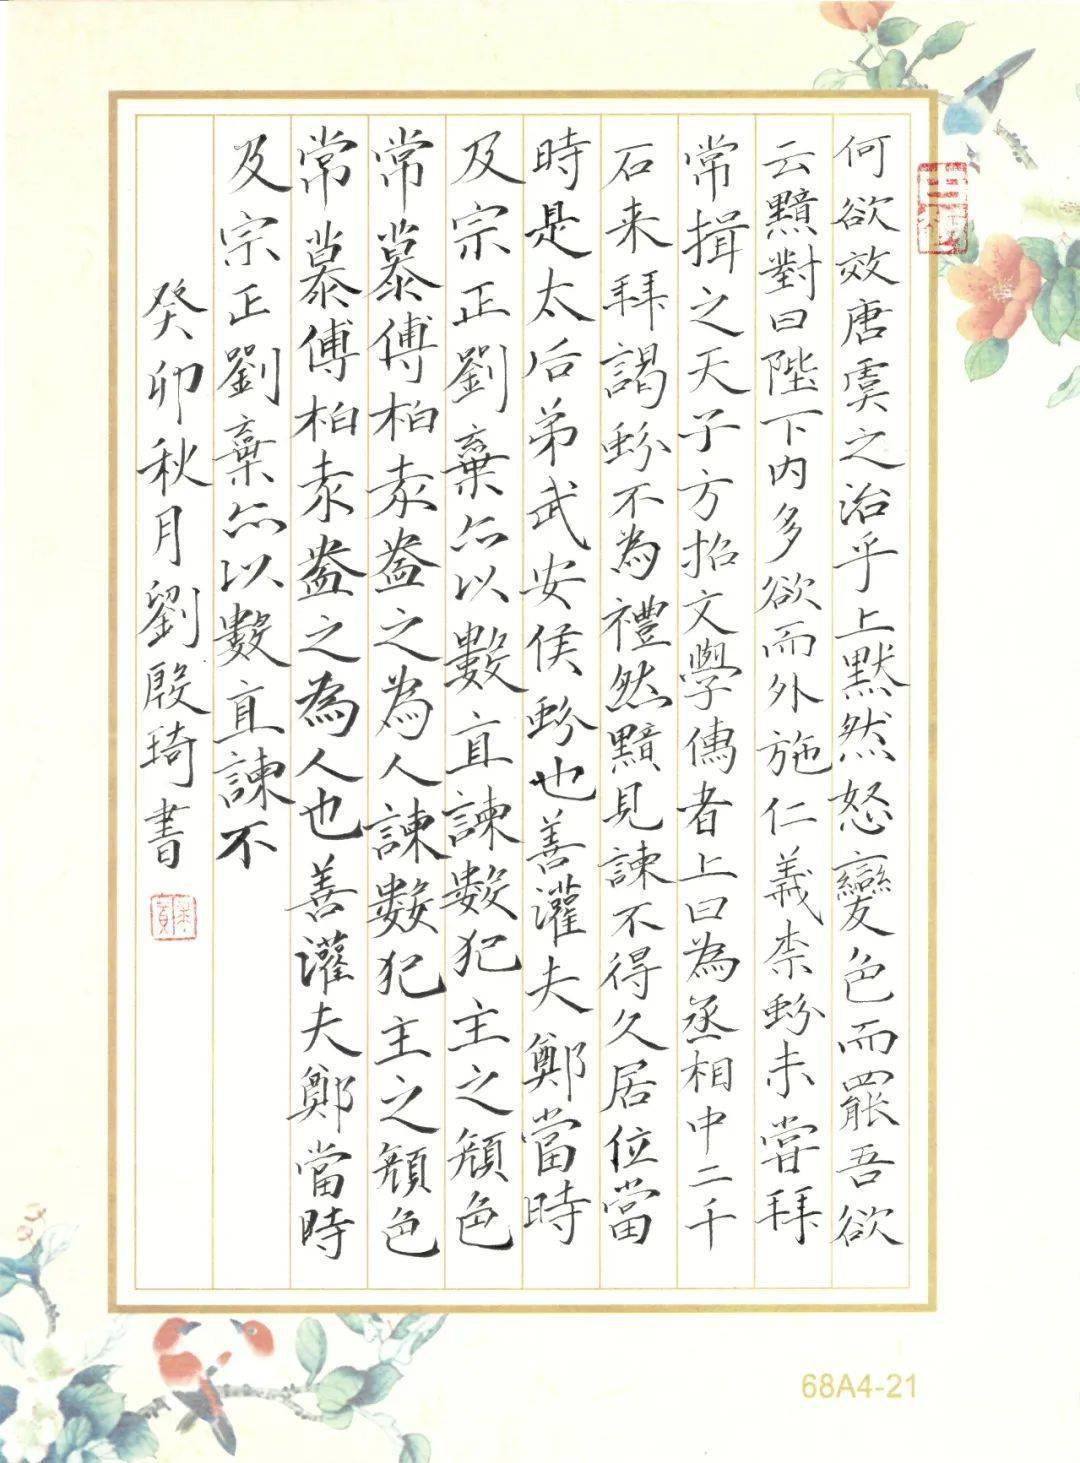 何欲效唐虞之治乎上默然怒變色而罷吾欲
云黯對曰陛下内多欲而外施仁義柰蚡未甞拜
常揖之天子方招文學傳者上曰為丞相中二千
石来拜謁蚡不為禮然黯見諫不得久居位當
時是太后弟武安侯蚡也善灌夫鄭當時
及宗正劉棄亦以數直諫數犯主之顏色
常慕傅柏袁盎之為人諫數犯主之顏色
常慕傅柏袁盎之為人也善灌夫鄭當時
及宗正劉棄亦以數直諫不
癸卯秋月劉殷琦書
68A4-21